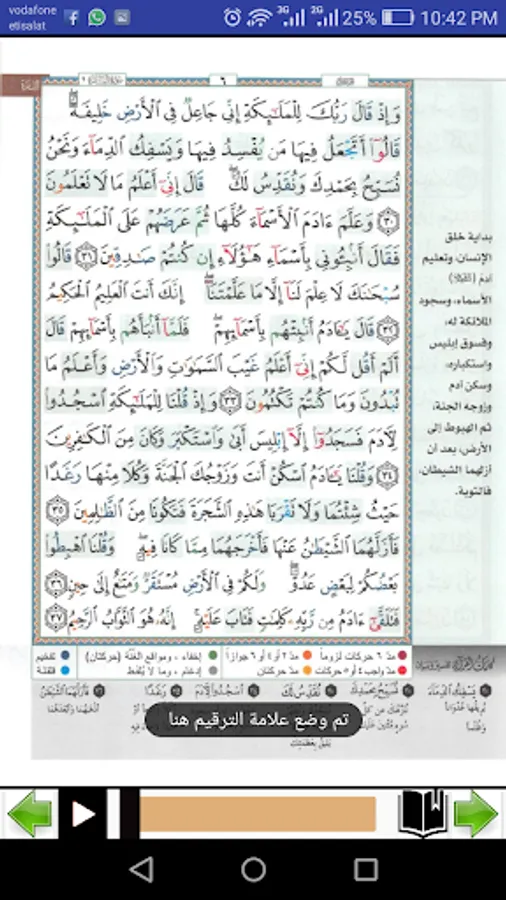 vodafone
etisalat
3G
2G
25%
10:42 PM
٦
وَإِذْ قَالَ رَبُّكَ لِلْمَلَٰٓئِكَةِ إِنِّى جَاعِلٌ فِى ٱلْأَرْضِ خَلِيفَةً ۖ
قَالُوٓا۟ أَتَجْعَلُ فِيهَا مَن يُفْسِدُ فِيهَا وَيَسْفِكُ ٱلدِّمَآءَ وَنَحْنُ
نُسَبِّحُ بِحَمْدِكَ وَنُقَدِّسُ لَكَ ۖ قَالَ إِنِّىٓ أَعْلَمُ مَا لَا تَعْلَمُونَ
٣٠ وَعَلَّمَ ءَادَمَ ٱلْأَسْمَآءَ كُلَّهَا ثُمَّ عَرَضَهُمْ عَلَى ٱلْمَلَٰٓئِكَةِ
فَقَالَ أَنۢبِـُٔونِى بِأَسْمَآءِ هَٰٓؤُلَآءِ إِن كُنتُمْ صَٰدِقِينَ ٣١ قَالُوا۟
سُبْحَٰنَكَ لَا عِلْمَ لَنَآ إِلَّا مَا عَلَّمْتَنَآ ۖ إِنَّكَ أَنتَ ٱلْعَلِيمُ ٱلْحَكِيمُ
٣٢ قَالَ يَٰٓـَٔادَمُ أَنۢبِئْهُم بِأَسْمَآئِهِمْ ۖ فَلَمَّآ أَنۢبَأَهُم بِأَسْمَآئِهِمْ قَالَ
أَلَمْ أَقُل لَّكُمْ إِنِّىٓ أَعْلَمُ غَيْبَ ٱلسَّمَٰوَٰتِ وَٱلْأَرْضِ وَأَعْلَمُ مَا
تُبْدُونَ وَمَا كُنتُمْ تَكْتُمُونَ ٣٣ وَإِذْ قُلْنَا لِلْمَلَٰٓئِكَةِ ٱسْجُدُوا۟
لِـَٔادَمَ فَسَجَدُوٓا۟ إِلَّآ إِبْلِيسَ أَبَىٰ وَٱسْتَكْبَرَ وَكَانَ مِنَ ٱلْكَٰفِرِينَ
٣٤ وَقُلْنَا يَٰٓـَٔادَمُ ٱسْكُنْ أَنتَ وَزَوْجُكَ ٱلْجَنَّةَ وَكُلَا مِنْهَا رَغَدًا
حَيْثُ شِئْتُمَا وَلَا تَقْرَبَا هَٰذِهِ ٱلشَّجَرَةَ فَتَكُونَا مِنَ ٱلظَّٰلِمِينَ ٣٥
فَأَزَلَّهُمَا ٱلشَّيْطَٰنُ عَنْهَا فَأَخْرَجَهُمَا مِمَّا كَانَا فِيهِ ۖ وَقُلْنَا ٱهْبِطُوا۟
بَعْضُكُمْ لِبَعْضٍ عَدُوٌّ ۖ وَلَكُمْ فِى ٱلْأَرْضِ مُسْتَقَرٌّ وَمَتَٰعٌ إِلَىٰ حِينٍ ٣٦
فَتَلَقَّىٰٓ ءَادَمُ مِن رَّبِّهِۦ كَلِمَٰتٍ فَتَابَ عَلَيْهِ ۚ إِنَّهُۥ هُوَ ٱلتَّوَّابُ ٱلرَّحِيمُ ٣٧
بداية خلق
الإنسان، وتعليم
آدم
الأسماء، وسجود
الملائكة له،
وفسوق إبليس
واستكباره،
وسكن آدم
وزوجه الجنة،
ثم الهبوط إلى
الأرض، بعد أن
أزلهما الشيطان،
فالتوبة.
مدّ ٦ حركات لزوماً مدّ ٢ أو ٤ أو ٦ جوازاً إخفاء ، ومواقع الغنّة (حركتان) تفخيم
مدّ واجب ٤ أو ٥ حركات مدّ حركتان إدغام ، وما لا يُلفظ قلقلة
يَسْفِكُ الدِّمَاءَ نُسَبِّحُ بِحَمْدِكَ نُقَدِّسُ لَكَ اسْجُدُوا لِآدَمَ رَغَدًا فَأَزَلَّهُمَا الشَّيْطَانُ
تم وضع علامة الترقيم هنا